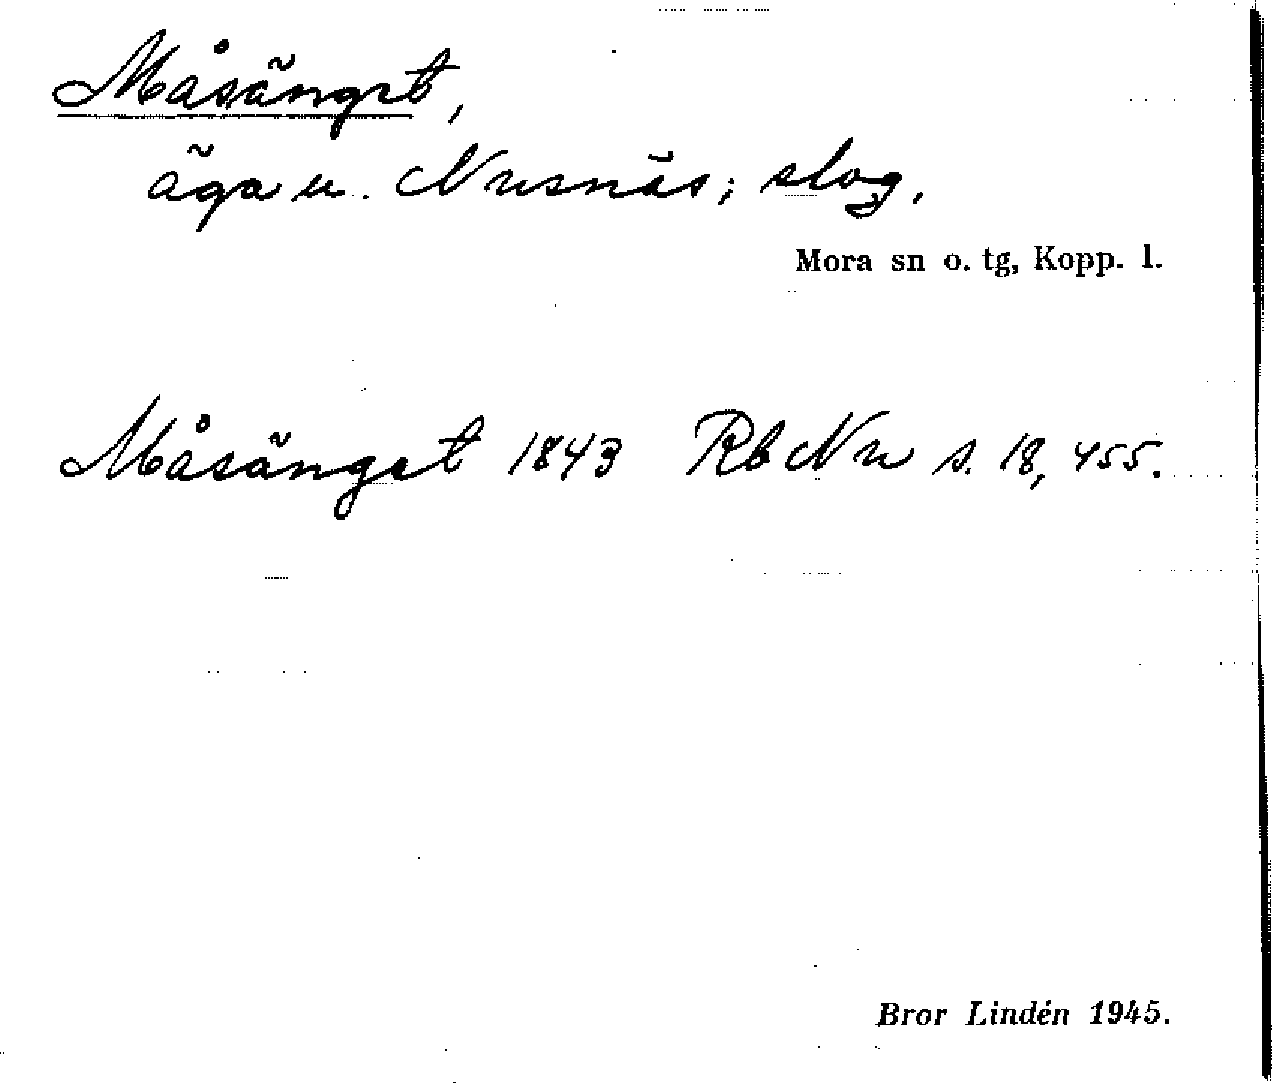 Måsänget,
äga u. Nusnäs; slog.
Mora sn o. tg, Kopp. l.
Måsänget 1843 Rb Nu s. 18, 455.
Bror Lindén 1945.